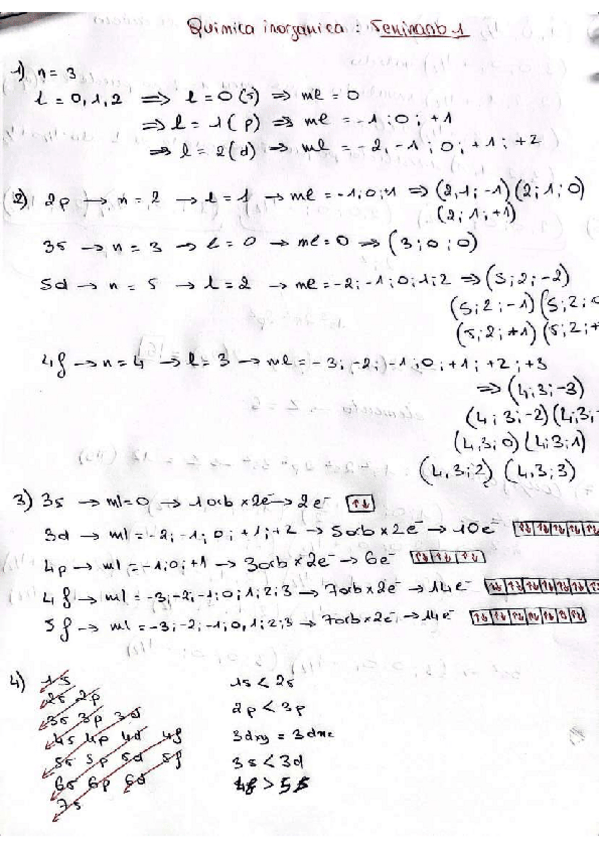 Química inorganica : Seminario 1
1) n = 3
l = 0,1,2 ⇒ l = 0 (s) ⇒ ml = 0
⇒ l = 1 (p) ⇒ ml = -1 ; 0 ; +1
⇒ l = 2 (d) ⇒ ml = -2, -1 ; 0 ; +1 ; +2
2) 2p → n = 2 → l = 1 → ml = -1;0;1 ⇒ (2,1;-1) (2;1;0)
(2;1;+1)
3s → n = 3 → l = 0 → ml = 0 ⇒ (3;0;0)
5d → n = 5 → l = 2 → ml = -2;-1;0;1;2 ⇒ (5;2;-2)
(5;2;-1) (5;2;
(5;2;+1) (5,2;+
4f → n = 4 → l = 3 → ml = -3;-2;-1;0;+1;+2;+3
⇒ (4,3;-3)
(4;3;-2) (4,3;
(4,3;0) (4;3;1)
(4,3;2) (4,3;3)
3) 3s → ml=0 → 1 orb x 2e⁻ → 2e⁻ ↑↓
3d → ml = -2;-1;0;+1;+2 → 5 orb x 2e⁻ → 10e⁻ ↑↓ ↑↓ ↑↓ ↑↓ ↑↓
4p → ml = -1;0;+1 → 3 orb x 2e⁻ → 6e⁻ ↑↓ ↑↓ ↑↓
4f → ml = -3;-2;-1;0;1;2;3 → 7 orb x 2e⁻ → 14e⁻ ↑↓ ↑↓ ↑↓ ↑↓ ↑↓ ↑↓ ↑↓
5f → ml = -3;-2;-1;0,1;2;3 → 7 orb x 2e⁻ → 14e⁻ ↑↓ ↑↓ ↑↓ ↑↓ ↑↓ ↑↓ ↑↓
4) 1s 1s < 2s
2s 2p 2p < 3p
3s 3p 3d 3dxy = 3dxz
4s 4p 4d 4f 3s < 3d
5s 5p 5d 5f 4f > 5s
6s 6p 6d
7s